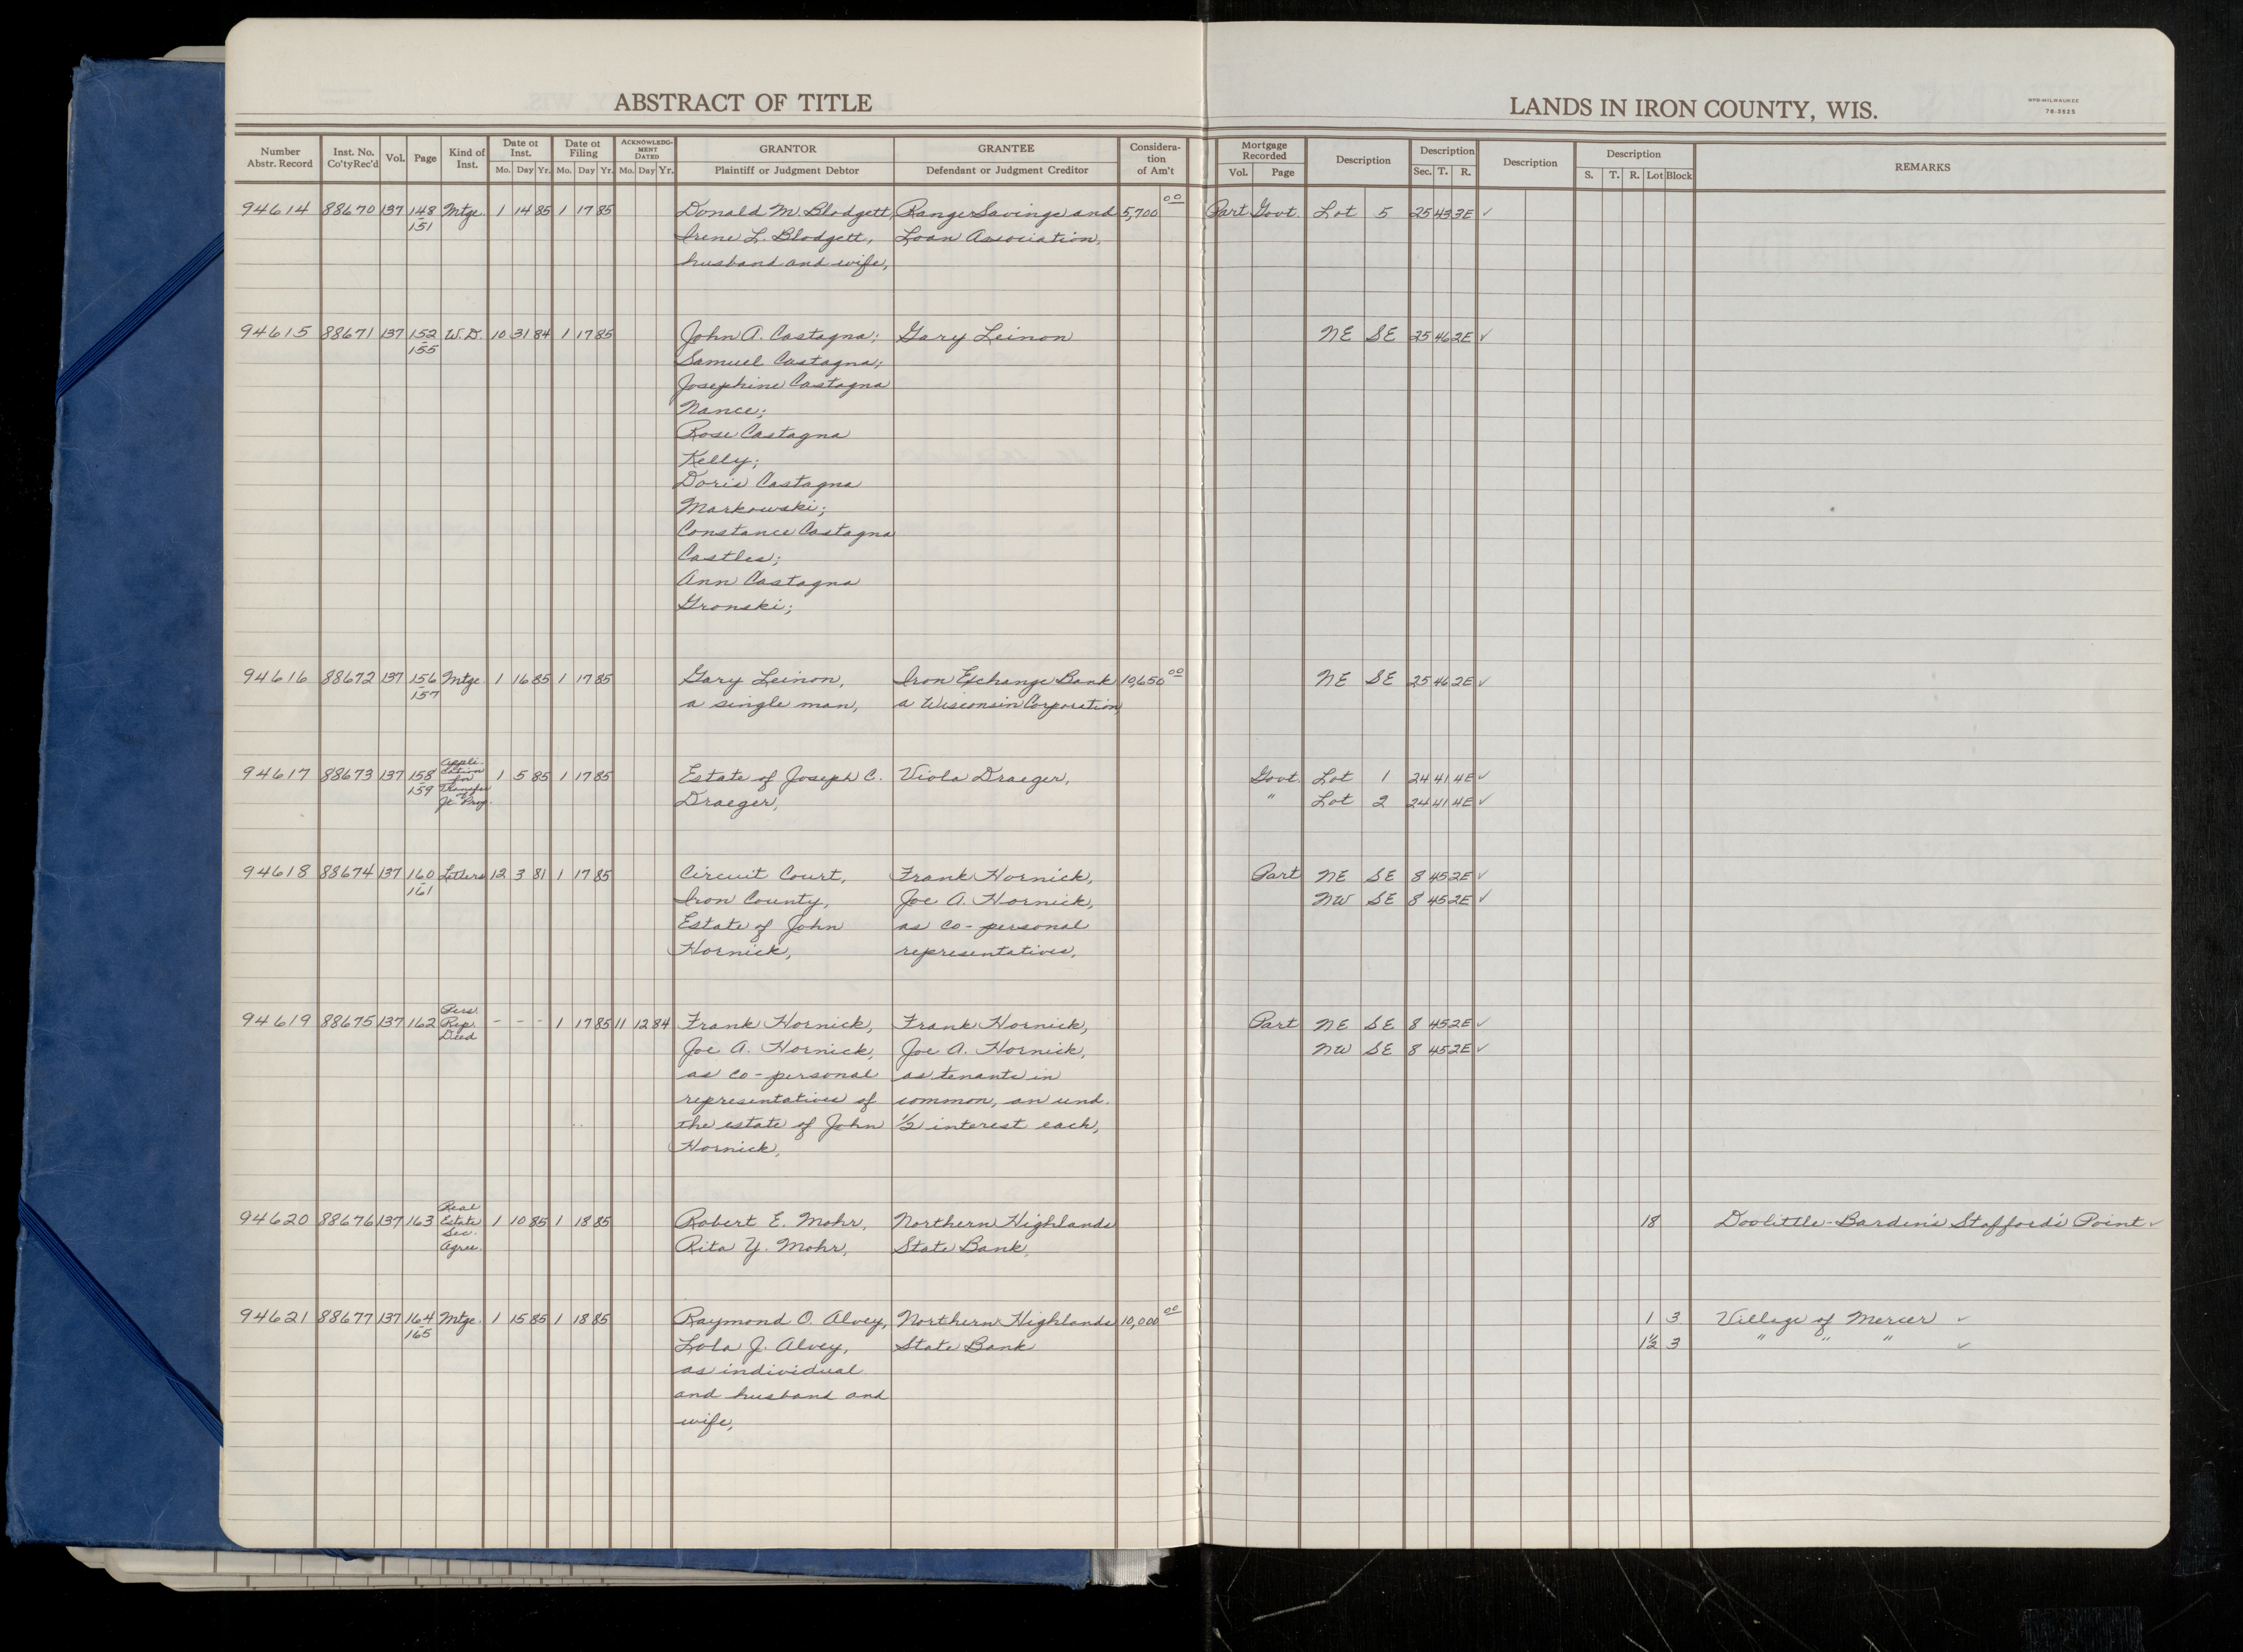 ABSTRACT OF TITLE
LANDS IN IRON COUNTY, WIS.
MPB-MILWAUKEE
78-3925
Number Abstr. Record | Inst. No. Co'ty Rec'd | Vol. | Page | Kind of Inst. | Date of Inst. Mo. Day Yr. | Date of Filing Mo. Day Yr. | ACKNOWLEDG-MENT DATED Mo. Day Yr. | GRANTOR Plaintiff or Judgment Debtor | GRANTEE Defendant or Judgment Creditor | Considera-tion of Am't | Mortgage Recorded Vol. Page | Description | Description Sec. T. R. | Description | Description S. T. R. Lot Block | REMARKS
94614 88670 137 148 Mtge. 1 14 85 1 17 85 Donald M. Blodgett, Range Savings and 5,700 00 Part Govt. Lot 5 25 43 3E ✓
151 Irene L. Blodgett, Loan Association,
husband and wife,
94615 88671 137 152 W.D. 10 31 84 1 17 85 John A. Castagna; Gary Leinon NE SE 25 46 2E ✓
155 Samuel Castagna;
Josephine Castagna
Nance;
Rose Castagna
Kelly;
Doris Castagna
Markowski;
Constance Castagna
Castles;
Ann Castagna
Gronski;
94616 88672 137 156 Mtge 1 16 85 1 17 85 Gary Leinon, Iron Exchange Bank 10,650 00 NE SE 25 46 2E ✓
157 a single man, a Wisconsin Corporation,
94617 88673 137 158 Appli-cation for Transfer of Jt. Prop. 1 5 85 1 17 85 Estate of Joseph C. Viola Draeger, Govt. Lot 1 24 41 4E ✓
159 Draeger, " Lot 2 24 41 4E ✓
94618 88674 137 160 Letters 12 3 81 1 17 85 Circuit Court, Frank Hornick, Part NE SE 8 45 2E ✓
161 Iron County, Joe A. Hornick, NW SE 8 45 2E ✓
Estate of John as co-personal
Hornick, representatives,
94619 88675 137 162 Pers. Rep. Deed - - - 1 17 85 11 12 84 Frank Hornick, Frank Hornick, Part NE SE 8 45 2E ✓
Joe A. Hornick, Joe A. Hornick, NW SE 8 45 2E ✓
as co-personal as tenants in
representatives of common, an und.
the estate of John 1/2 interest each,
Hornick,
94620 88676 137 163 Real Estate Sec. Agree. 1 10 85 1 18 85 Robert E. Mohr, Northern Highlands 18 Doolittle-Barden's Stafford's Point ✓
Rita Y. Mohr, State Bank,
94621 88677 137 164 Mtge. 1 15 85 1 18 85 Raymond O. Alvey, Northern Highlands 10,000 00 1 3 Village of Mercer ✓
165 Lola J. Alvey, State Bank 1 1/2 3 " " " ✓
as individual
and husband and
wife,